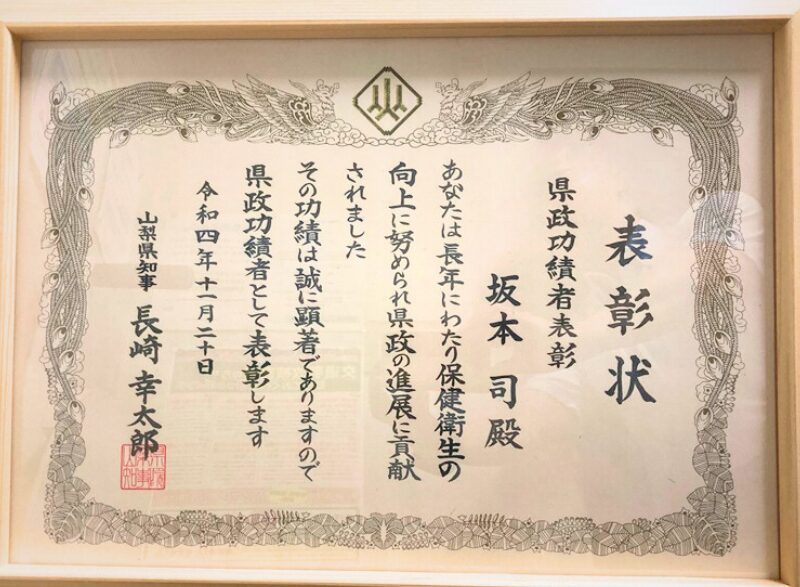 表彰状
県政功績者表彰
坂本 司 殿
あなたは長年にわたり保健衛生の
向上に努められ県政の進展に貢献
されました
その功績は誠に顕著でありますので
県政功績者として表彰します
令和四年十一月二十日
山梨県知事 長崎 幸太郎